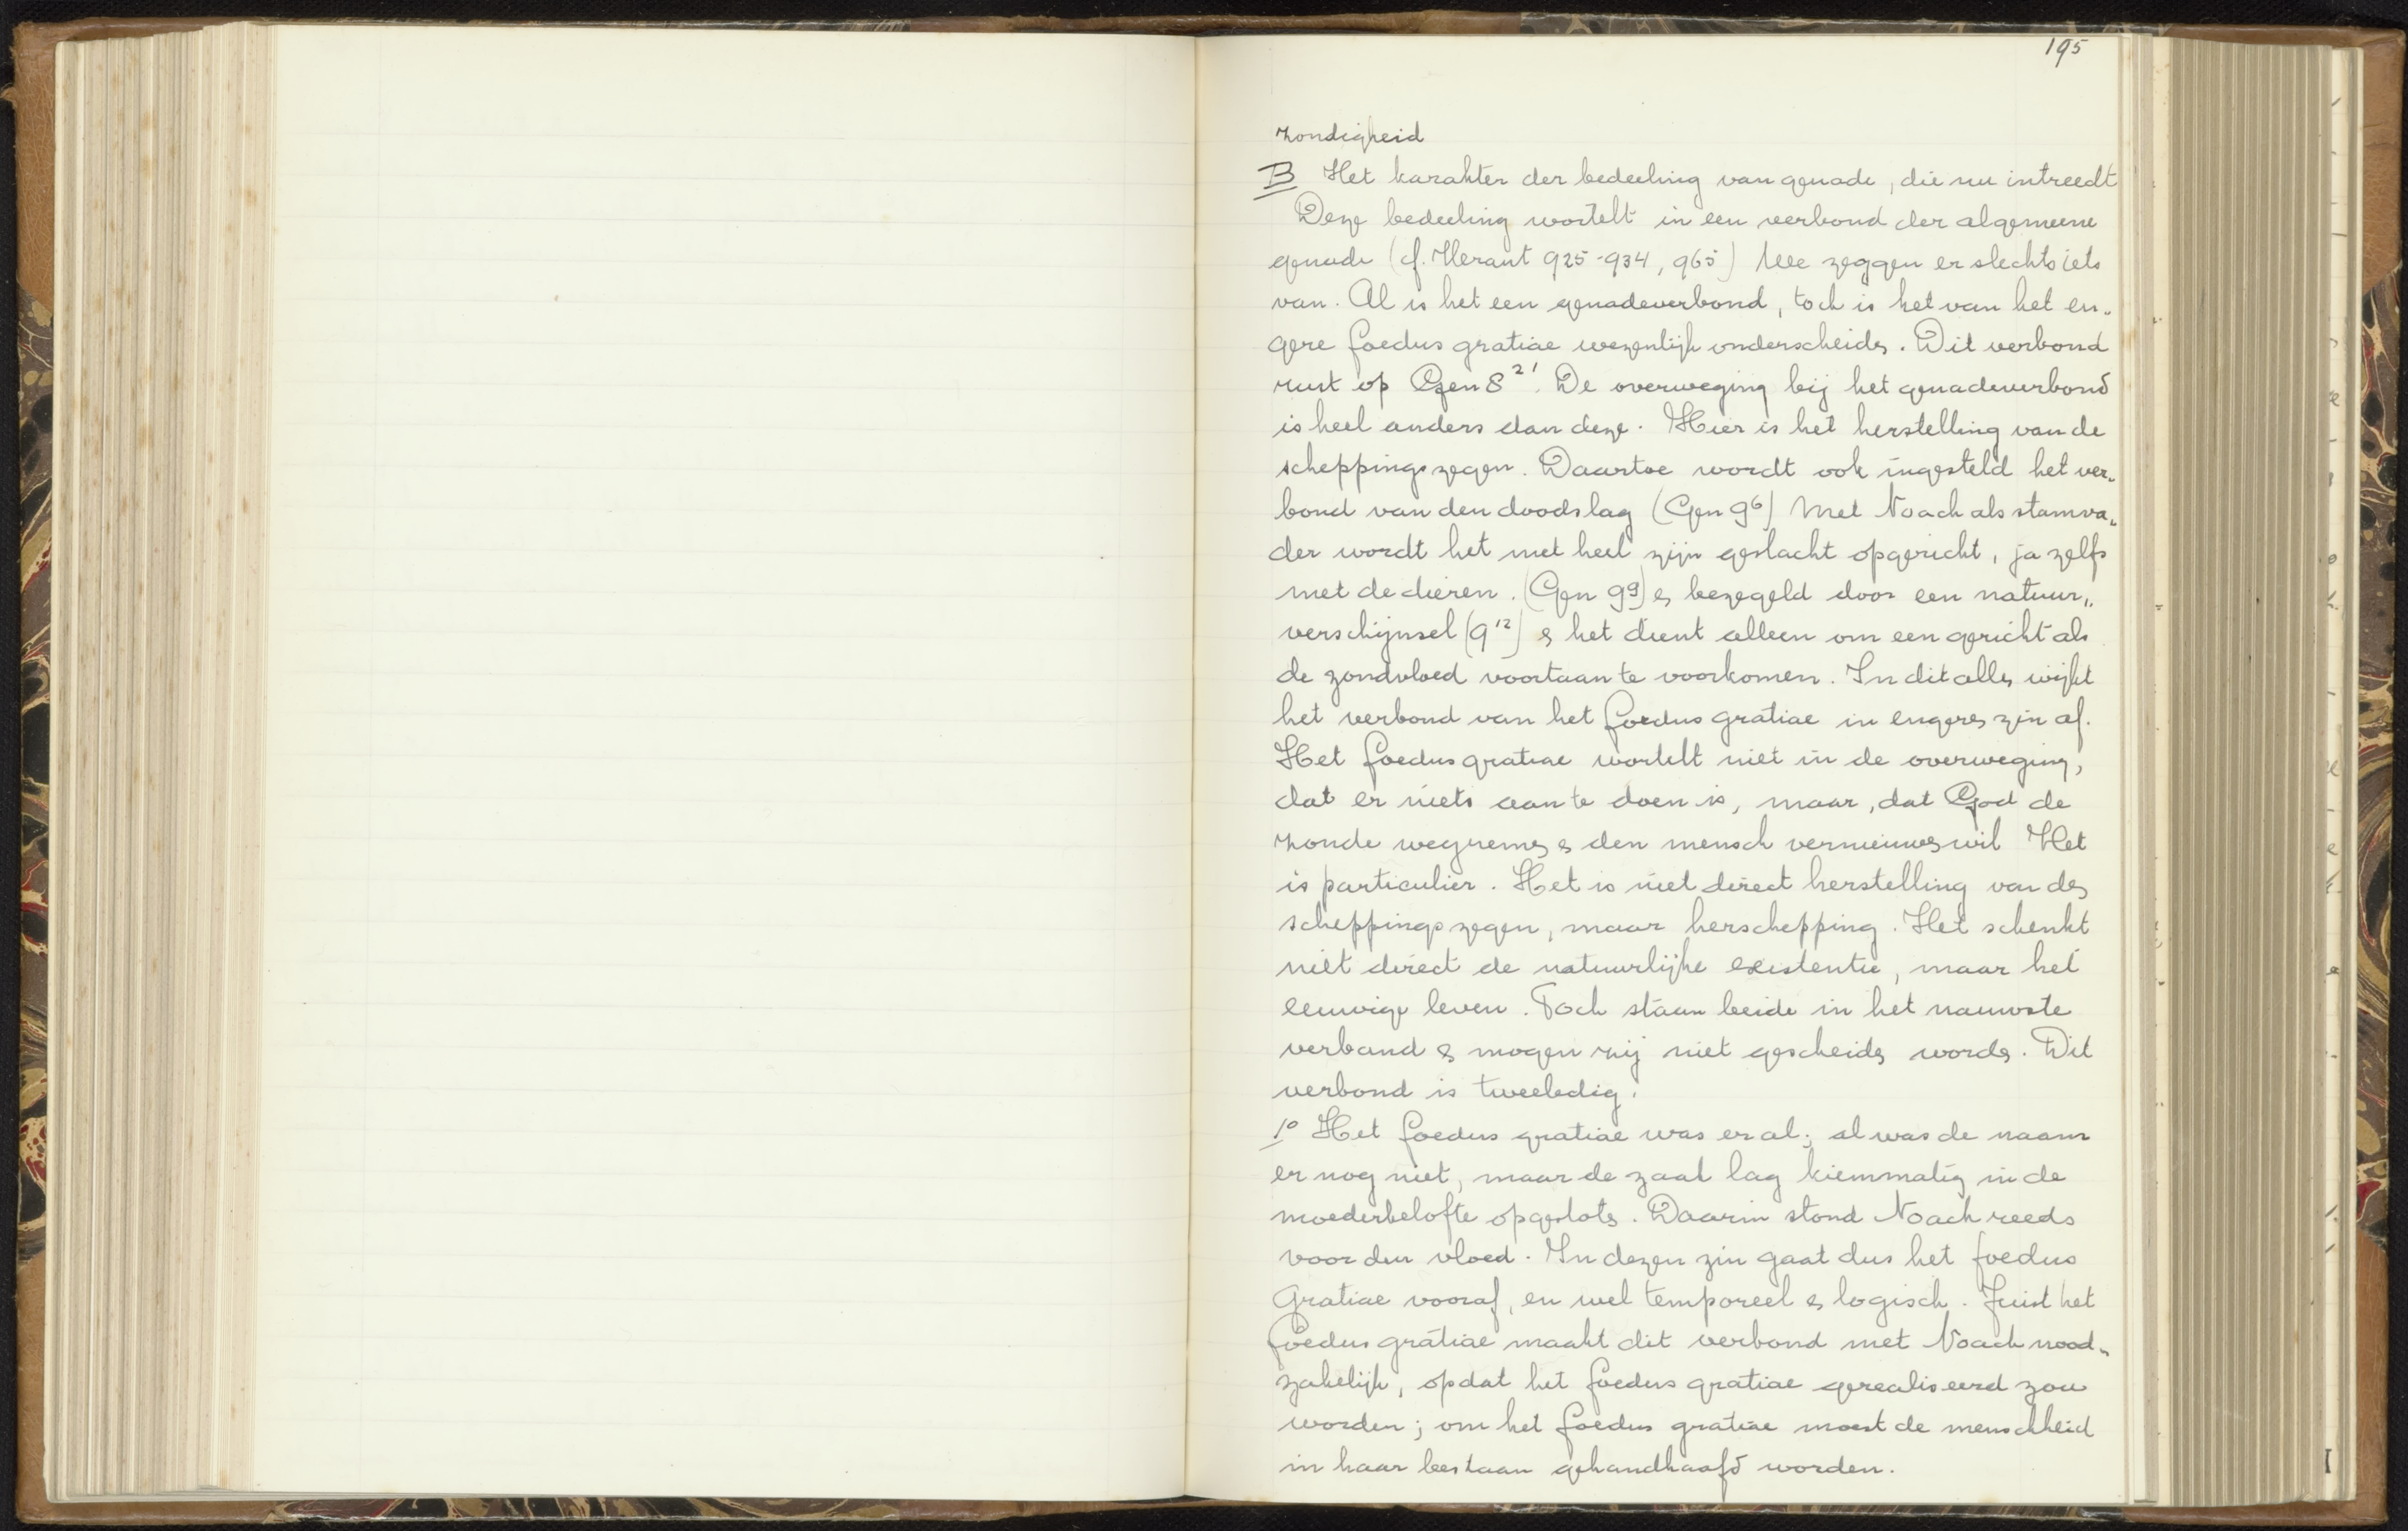 195
zondigheid
B Het karakter der bedeeling van genade, die nu intreedt
Deze bedeeling wortelt in een verbond der algemeene
genade (cf. Heraut 925-934, 965) We zeggen er slechts iets
van. Al is het een genadeverbond, toch is het van het en„
gere foedus gratiae wezenlijk onderscheiden. Dit verbond
rust op Gen 8²¹. De overweging bij het genadeverbond
is heel anders dan deze. Hier is het herstelling van de
scheppingszegen. Daartoe wordt ook ingesteld het ver„
bond van den doodslag (Gen 9⁶) Met Noach als stamva„
der wordt het met heel zijn geslacht opgericht, ja zelfs
met de dieren. (Gen 9⁹) en bezegeld door een natuur„
verschijnsel (9¹²) en het dient alleen om een gericht als
de zondvloed voortaan te voorkomen. In dit alles wijkt
het verbond van het foedus gratiae in engeren zin af.
Het foedus gratiae wortelt niet in de overweging,
dat er niets aan te doen is, maar, dat God de
zonde wegnemen en den mensch vernieuwen wil Het
is particulier. Het is niet direct herstelling van den
scheppingszegen, maar herschepping. Het schenkt
niet direct de natuurlijke existentie, maar het
eeuwige leven. Toch staan beide in het nauwste
verband en mogen zij niet gescheiden worden. Dit
verbond is tweeledig.
1° Het foedus gratiae was er al; al was de naam
er nog niet, maar de zaak lag kiemmatig in de
moederbelofte opgesloten. Daarin stond Noach reeds
voor den vloed. In dezen zin gaat dus het foedus
Gratiae vooraf, en wel temporeel en logisch. Juist het
foedus gratiae maakt dit verbond met Noach nood„
zakelijk, opdat het foedus gratiae gerealiseerd zou
worden; om het foedus gratiae moest de menschheid
in haar bestaan gehandhaafd worden.